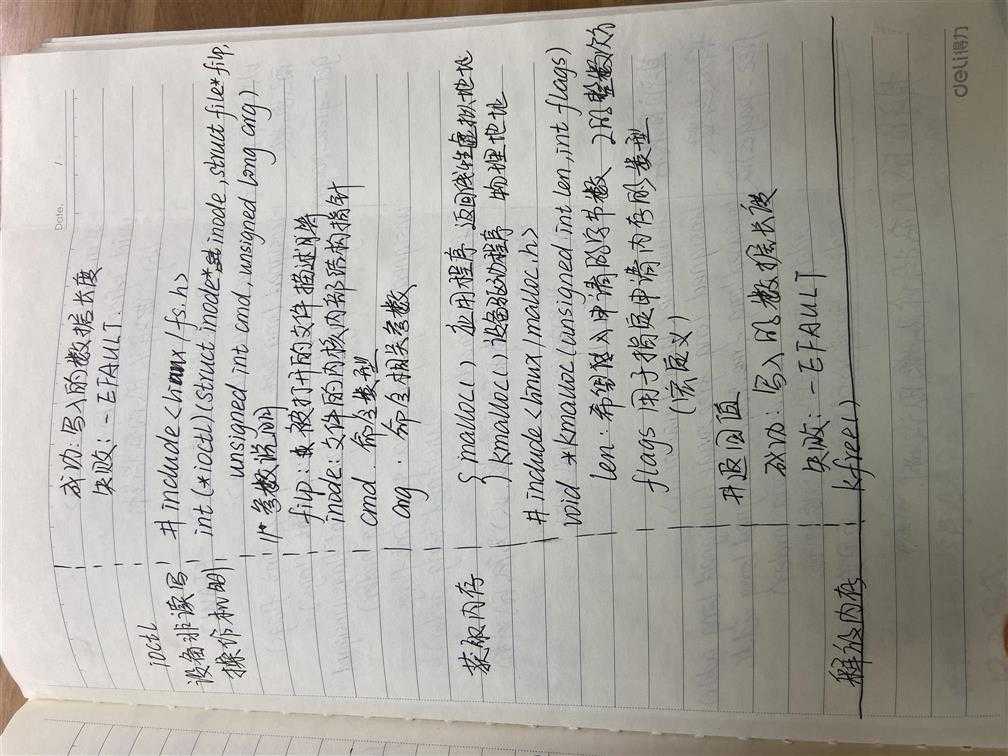 Date.
成功：写入的数据长度
失败：-EFAULT.
ioctl
设备非读写
操作机制
#include <linux/fs.h>
int (*ioctl)(struct inode* inode, struct file* filp,
unsigned int cmd, unsigned long arg)
//* 参数说明
filp: 被打开的文件描述
inode: 文件的内核内部结构指针
cmd. 命令类型
arg. 命令相关参数
获取内存
malloc() 应用程序 返回线性虚拟地址
kmalloc() 设备驱动程序 物理地址
#include <linux/malloc.h>
void *kmalloc(unsigned int len, int flags)
len: 希望申请的字节数 2的整数次幂
flags 用于指定申请内存的类型
(宏定义)
#返回值
成功：写入的数据长度
失败：-EFAULT
释放内存 kfree()
deli得力